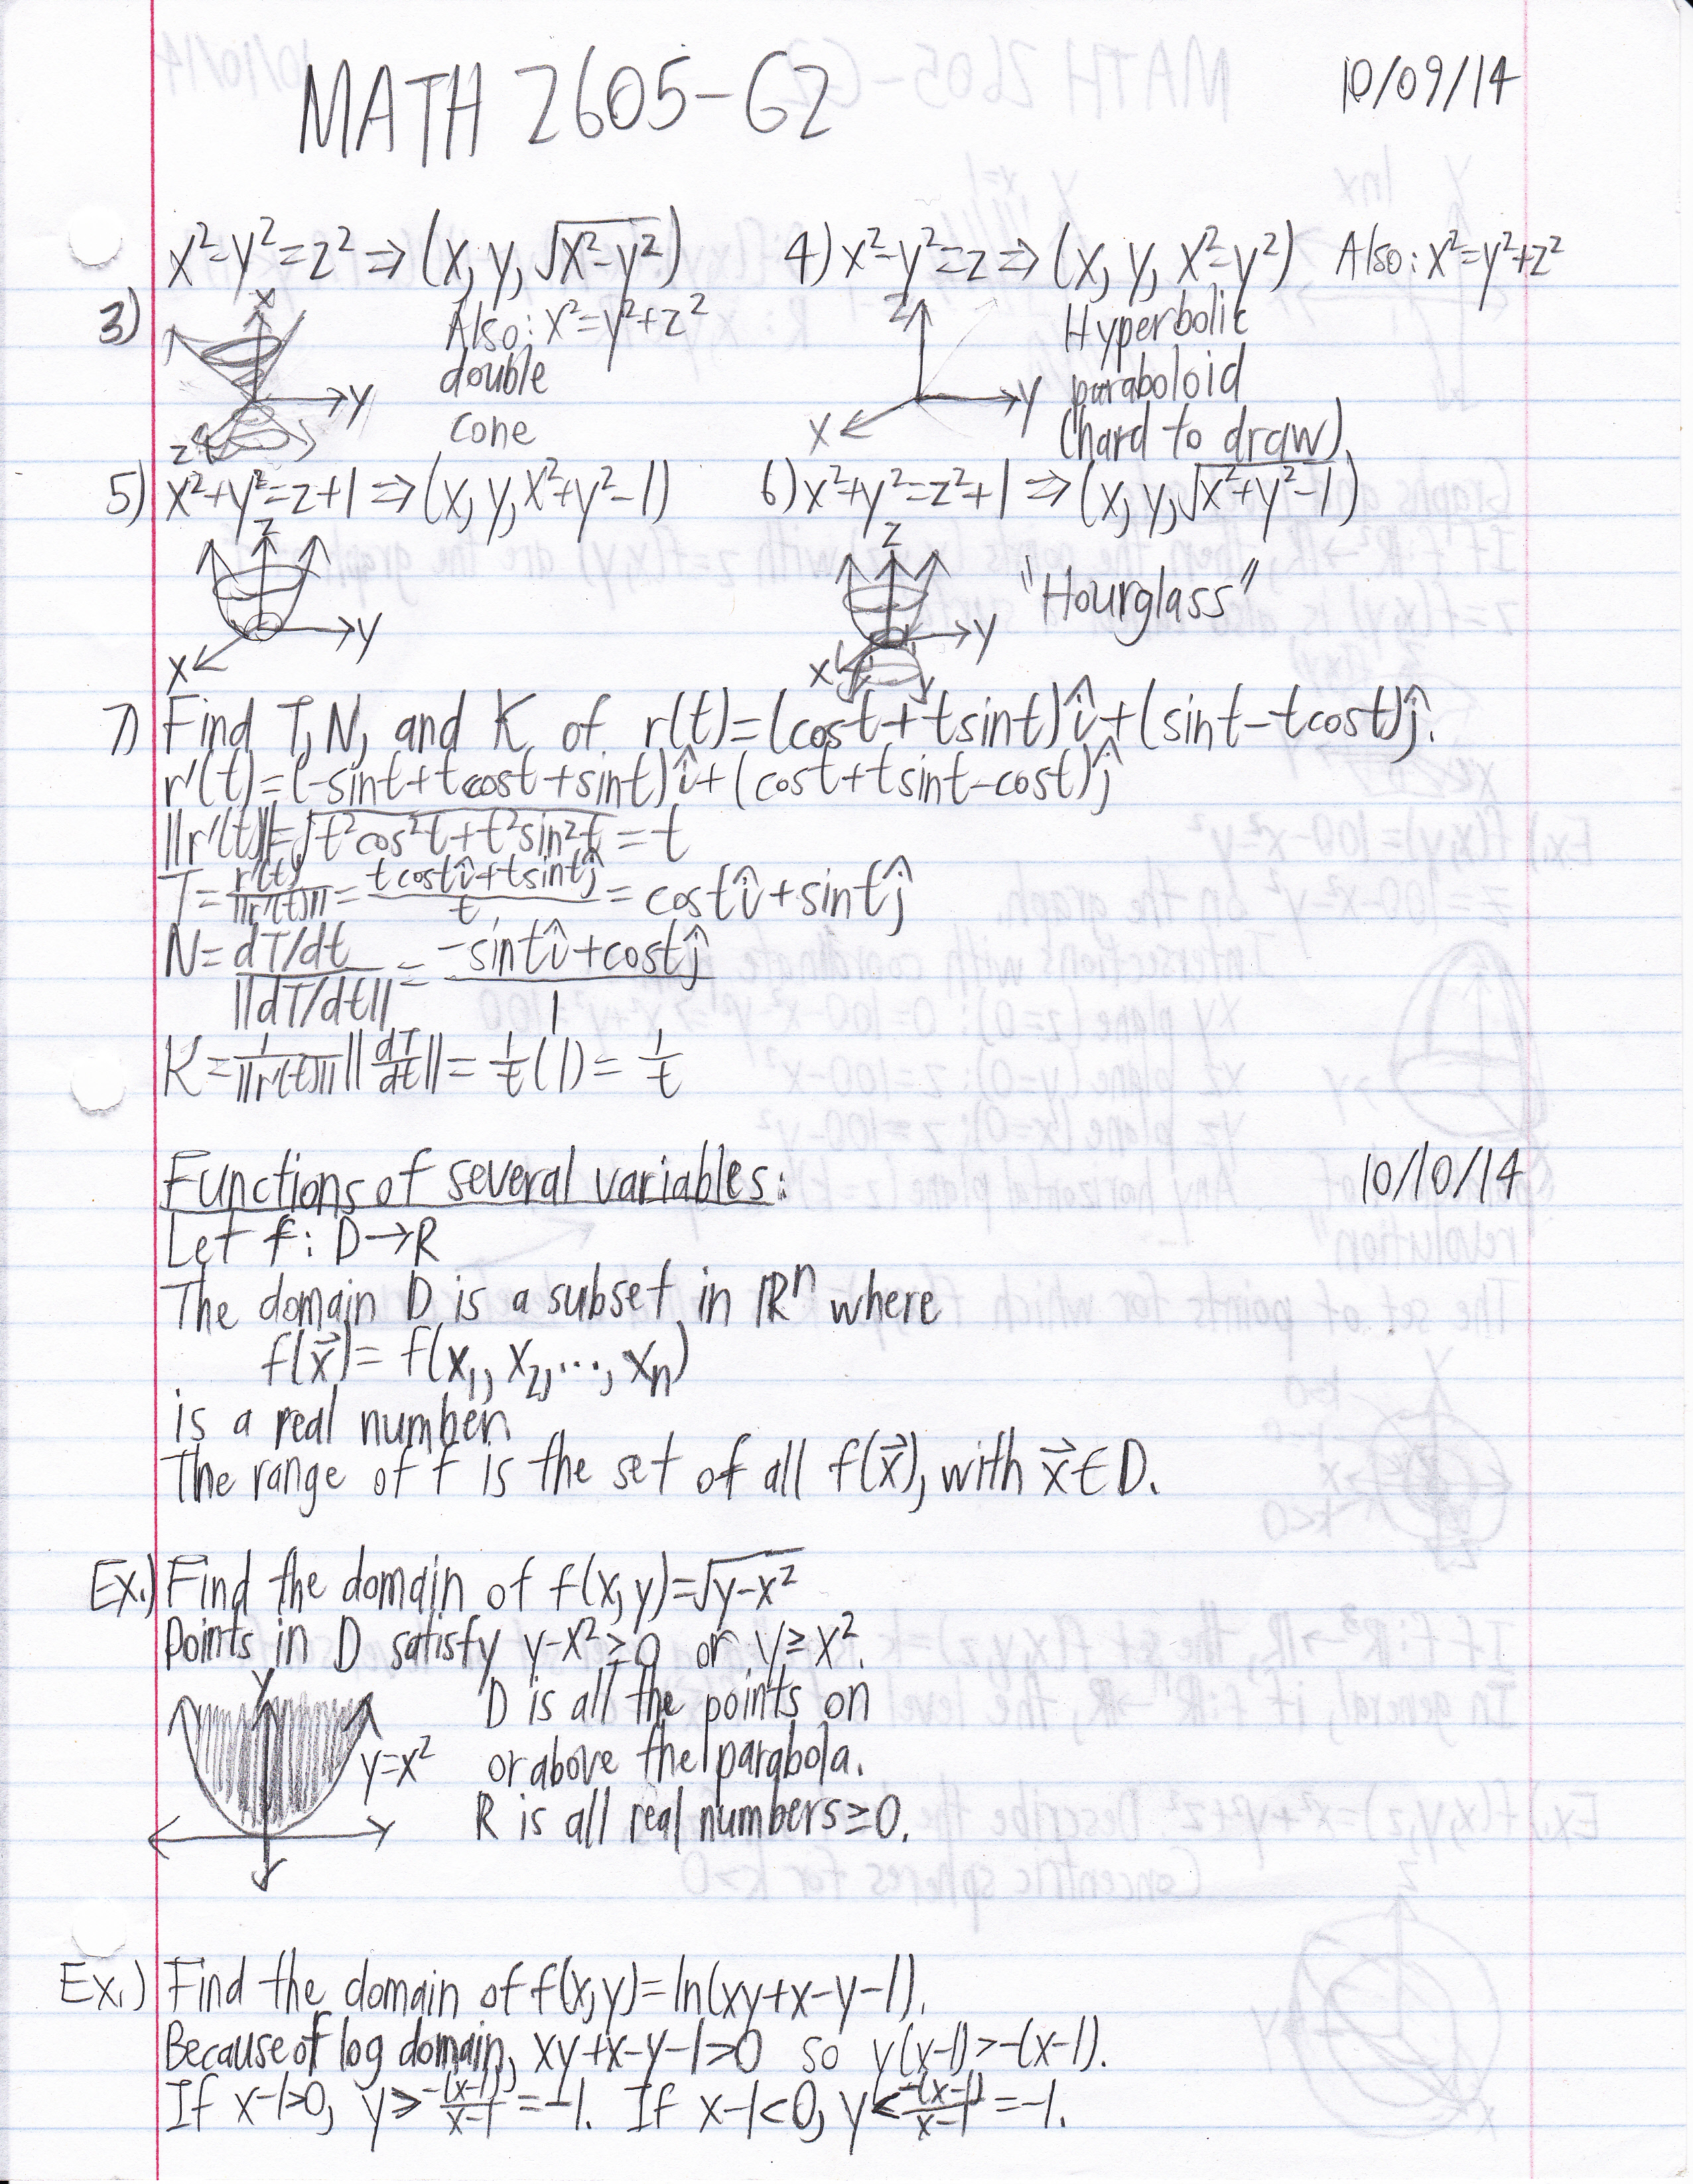 MATH 2605-G2
10/09/14
x²-y²=z² ⇒ (x, y, √(x²-y²))
4) x²-y²=z ⇒ (x, y, x²-y²) Also: x²=y²+z²
3)
x
y
z
Also: x²=y²+z²
double
cone
z
y
x
Hyperbolic
paraboloid
(hard to draw)
5) x²+y²=z+1 ⇒ (x, y, x²+y²-1)
6) x²+y²=z²+1 ⇒ (x, y, √(x²+y²-1))
z
y
x
z
y
x
"Hourglass"
7) Find T, N, and K of r(t)=(cost+tsint)î+(sint-tcost)ĵ.
r'(t)=(-sint+tcost+sint)î+(cost+tsint-cost)ĵ
||r'(t)||=√(t²cos²t+t²sin²t)=t
T=r'(t)/||r'(t)||=(tcostî+tsintĵ)/t=costî+sintĵ
N=(dT/dt)/||dT/dt||=(-sintî+costĵ)/1
K=1/||r'(t)|| ||dT/dt||=1/t(1)=1/t
Functions of several variables:
10/10/14
Let f: D→R
The domain D is a subset in ℝⁿ where
f(x⃗)=f(x₁, x₂, ..., xₙ)
is a real number.
The range of f is the set of all f(x⃗), with x⃗∈D.
Ex.) Find the domain of f(x,y)=√(y-x²)
Points in D satisfy y-x²≥0 or y≥x².
y
y=x²
D is all the points on
or above the parabola.
R is all real numbers≥0.
Ex.) Find the domain of f(x,y)=ln(xy+x-y-1).
Because of log domain, xy+x-y-1>0 so y(x-1)>-(x-1).
If x-1>0, y>-(x-1)/(x-1)=-1. If x-1<0, y<-(x-1)/(x-1)=-1.